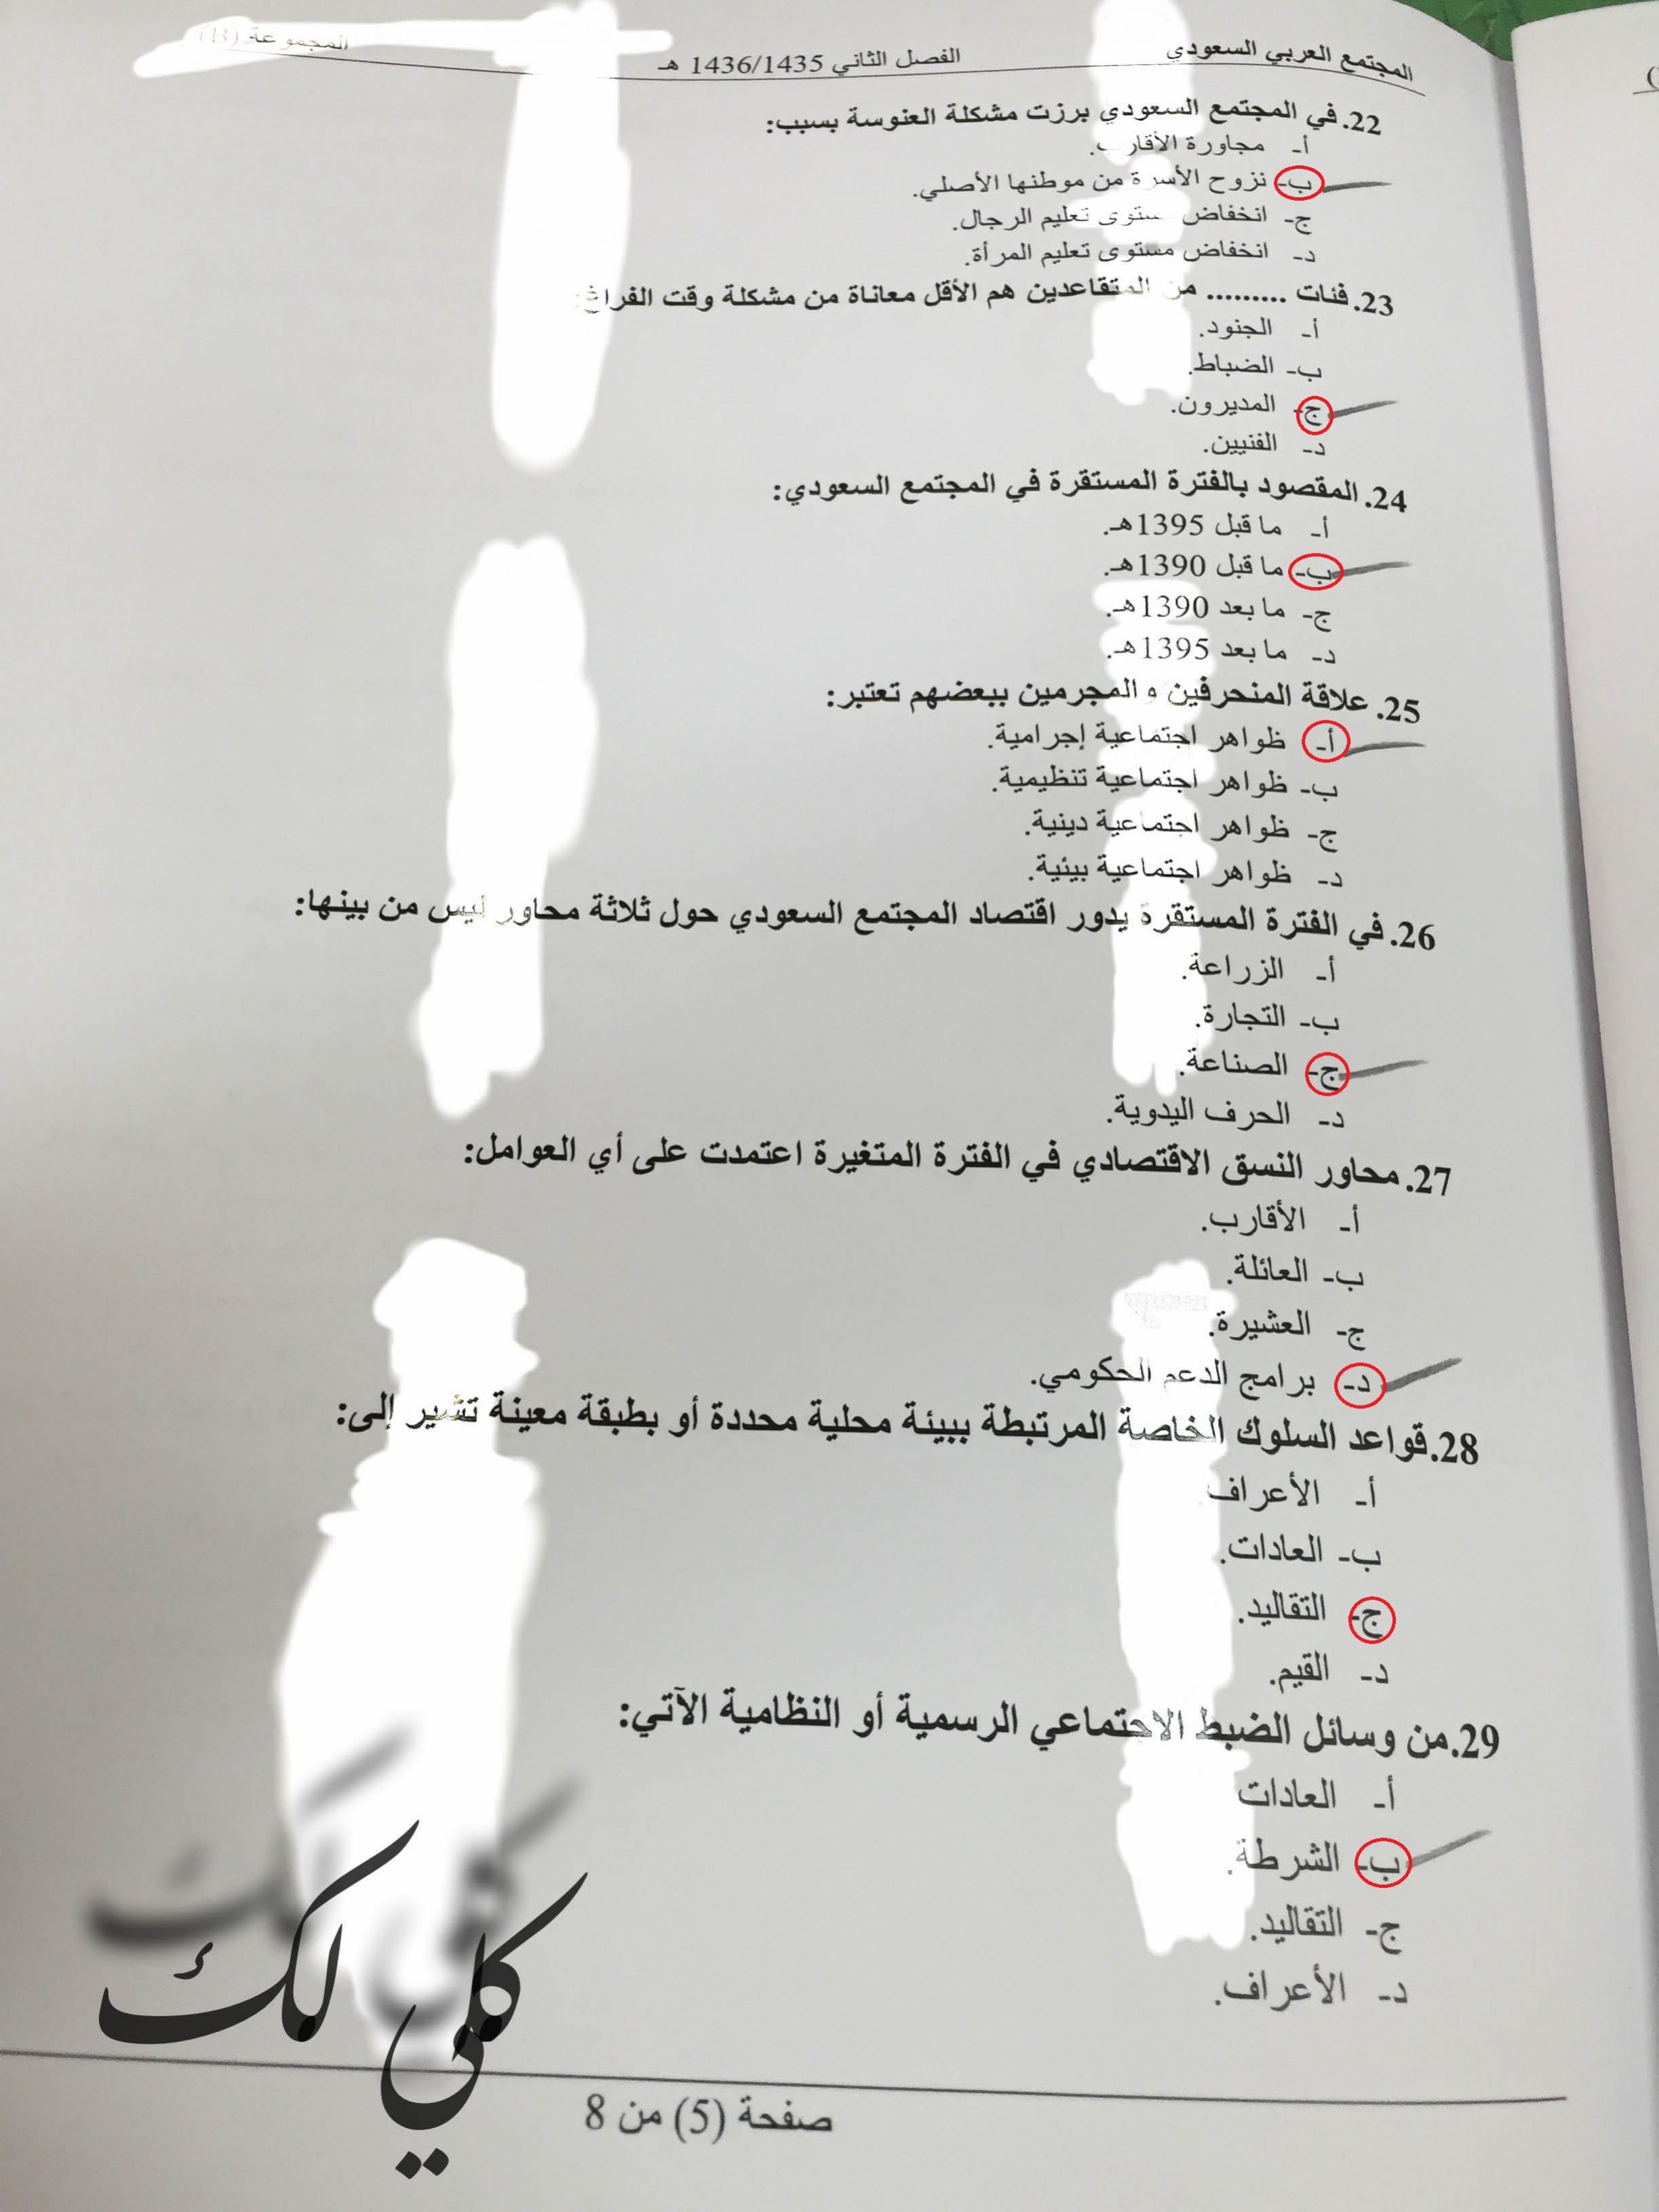 المجتمع العربي السعودي
الفصل الثاني 1436/1435 هـ
المجموعة (B)
22. في المجتمع السعودي برزت مشكلة العنوسة بسبب:
أ- مجاورة الأقارب.
ب- نزوح الأسرة من موطنها الأصلي.
ج- انخفاض مستوى تعليم الرجال.
د- انخفاض مستوى تعليم المرأة.
23. فئات ......... من المتقاعدين هم الأقل معاناة من مشكلة وقت الفراغ:
أ- الجنود.
ب- الضباط.
ج- المديرون.
د- الفنيين.
24. المقصود بالفترة المستقرة في المجتمع السعودي:
أ- ما قبل 1395هـ.
ب- ما قبل 1390هـ.
ج- ما بعد 1390هـ.
د- ما بعد 1395هـ.
25. علاقة المنحرفين و المجرمين ببعضهم تعتبر:
أ- ظواهر اجتماعية إجرامية.
ب- ظواهر اجتماعية تنظيمية.
ج- ظواهر اجتماعية دينية.
د- ظواهر اجتماعية بيئية.
26. في الفترة المستقرة يدور اقتصاد المجتمع السعودي حول ثلاثة محاور ليس من بينها:
أ- الزراعة.
ب- التجارة.
ج- الصناعة.
د- الحرف اليدوية.
27. محاور النسق الاقتصادي في الفترة المتغيرة اعتمدت على أي العوامل:
أ- الأقارب.
ب- العائلة.
ج- العشيرة.
د- برامج الدعم الحكومي.
28. قواعد السلوك الخاصة المرتبطة ببيئة محلية محددة أو بطبقة معينة تشير إلى:
أ- الأعراف
ب- العادات.
ج- التقاليد.
د- القيم.
29. من وسائل الضبط الاجتماعي الرسمية أو النظامية الآتي:
أ- العادات
ب- الشرطة.
ج- التقاليد.
د- الأعراف.
كلي لك
صفحة (5) من 8